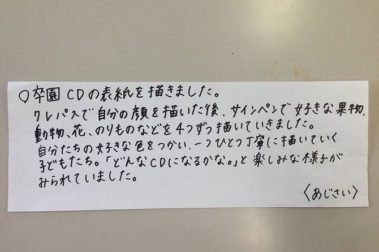 ○卒園CDの表紙を描きました。
クレパスで自分の顔を描いた後、サインペンで好きな果物、
動物、花、のりものなどを4つずつ描いていきました。
自分たちの好きな色をつかい、一つひとつ丁寧に描いていく
子どもたち。「どんなCDになるかな。」と楽しみな様子が
みられていました。
〈あじさい〉